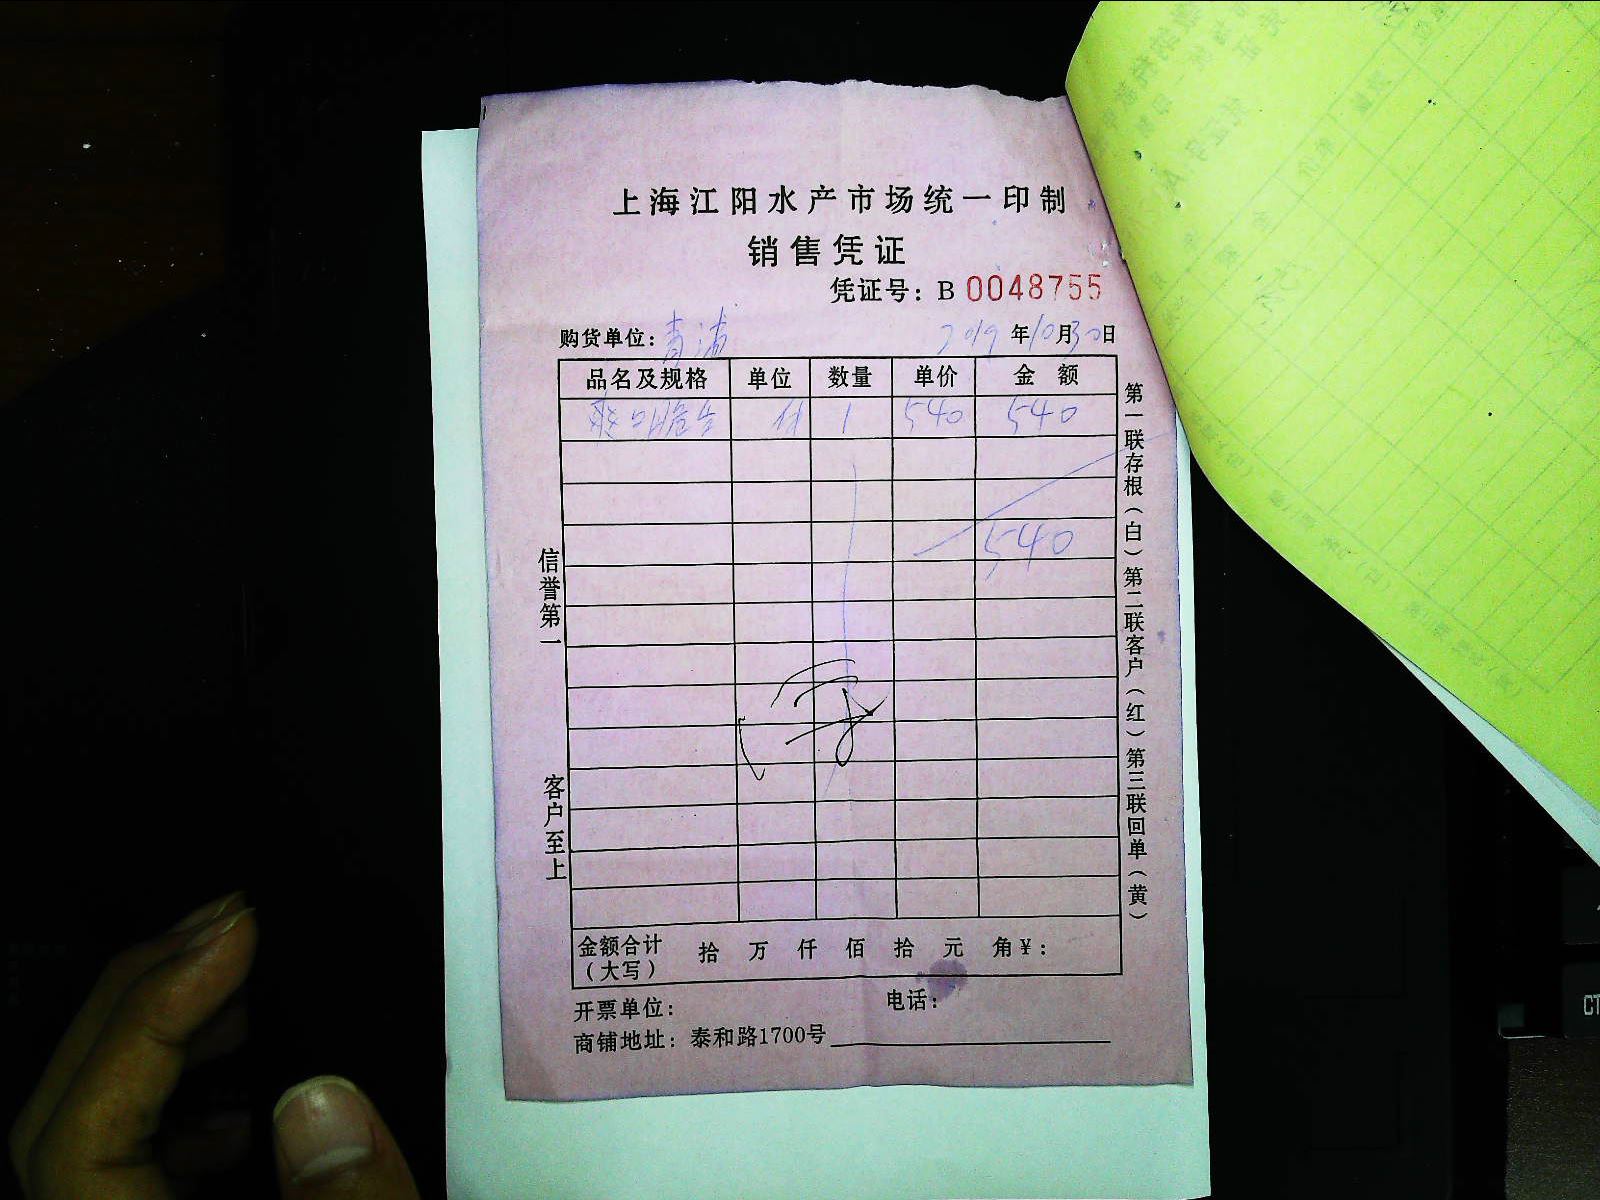 上海江阳水产市场统一印制
销售凭证
凭证号：B 0048755
购货单位：青浦 2019年10月30日
品名及规格 单位 数量 单价 金额
件 1 540 540
540
信誉第一
客户至上
第一联存根（白）第二联客户（红）第三联回单（黄）
金额合计（大写） 拾 万 仟 佰 拾 元 角￥：
开票单位： 电话：
商铺地址：泰和路1700号